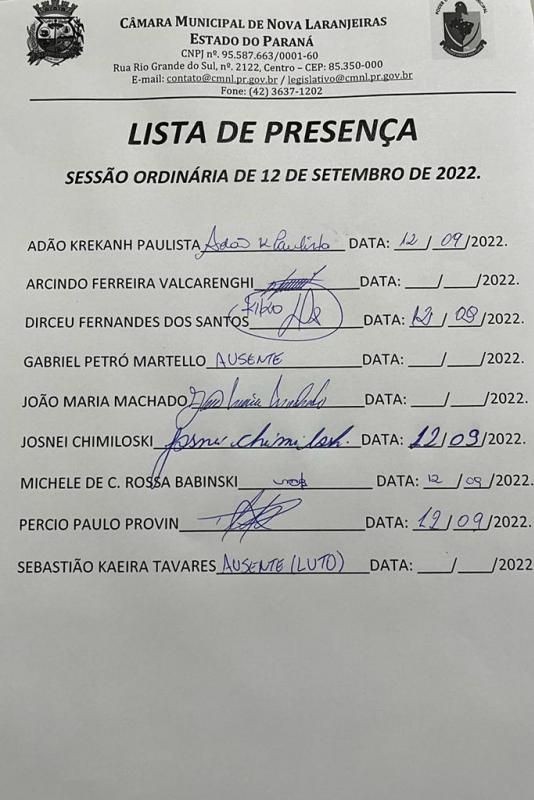 CÂMARA MUNICIPAL DE NOVA LARANJEIRAS
ESTADO DO PARANÁ
CNPJ nº. 95.587.663/0001-60
Rua Rio Grande do Sul, nº. 2122, Centro – CEP: 85.350-000
E-mail: contato@cmnl.pr.gov.br / legislativo@cmnl.pr.gov.br
Fone: (42) 3637-1202
LISTA DE PRESENÇA
SESSÃO ORDINÁRIA DE 12 DE SETEMBRO DE 2022.
ADÃO KREKANH PAULISTA Adão K Paulista DATA: 12/09/2022.
ARCINDO FERREIRA VALCARENGHI DATA: ___/___/2022.
DIRCEU FERNANDES DOS SANTOS DATA: 12/09/2022.
GABRIEL PETRÓ MARTELLO AUSENTE DATA: ___/___/2022.
JOÃO MARIA MACHADO João Maria Machado DATA: ___/___/2022.
JOSNEI CHIMILOSKI Josnei Chimilosk. DATA: 12/09/2022.
MICHELE DE C. ROSSA BABINSKI DATA: 12/09/2022.
PERCIO PAULO PROVIN DATA: 12/09/2022.
SEBASTIÃO KAEIRA TAVARES AUSENTE (LUTO) DATA: ___/___/2022